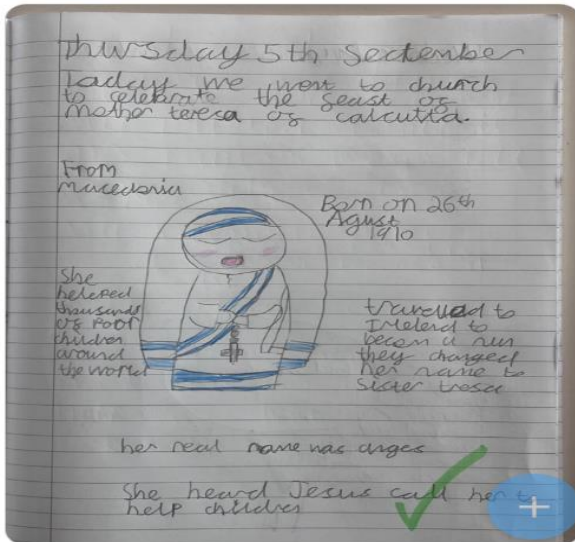 Thursday 5th Sectember
Today we went to church
to celebrate the feast of
Mother teresa of calcutta.
From
Macedonia
Born on 26th
Agust
1910
She
heleped
thousands
of Poor
children
around
the world
travelled to
Irlelend to
becom a nun
they changed
her name to
Sister tresa
her real name was anges
She heard Jesus call her to
help children